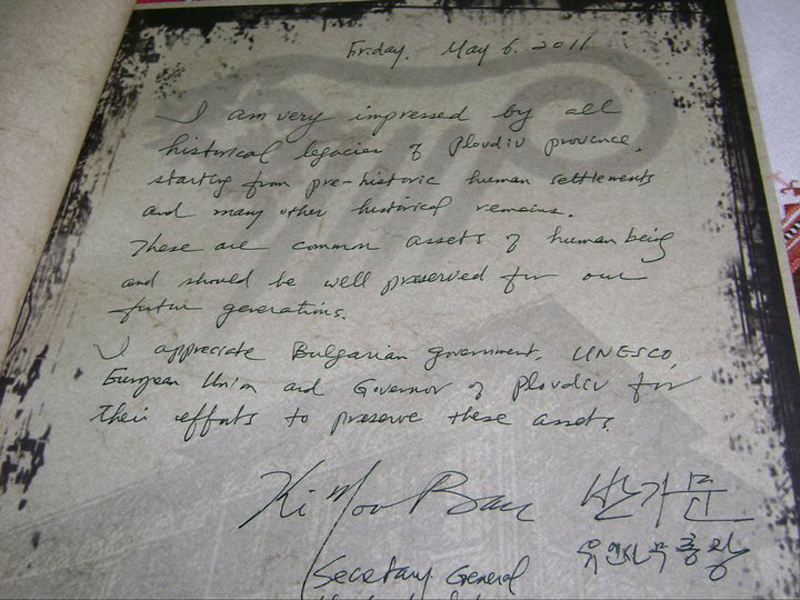 Friday, May 6. 2011
I am very impressed by all
historical legacies of Plovdiv province,
starting from pre-historic human settlements
and many other historical remains.
These are common assets of human being
and should be well preserved for our
future generations.
I appreciate Bulgarian government, UNESCO,
European Union and Governor of Plovdiv for
their efforts to preserve these assets.
Ki Moon Ban 반기문
유엔사무총장
Secretary General